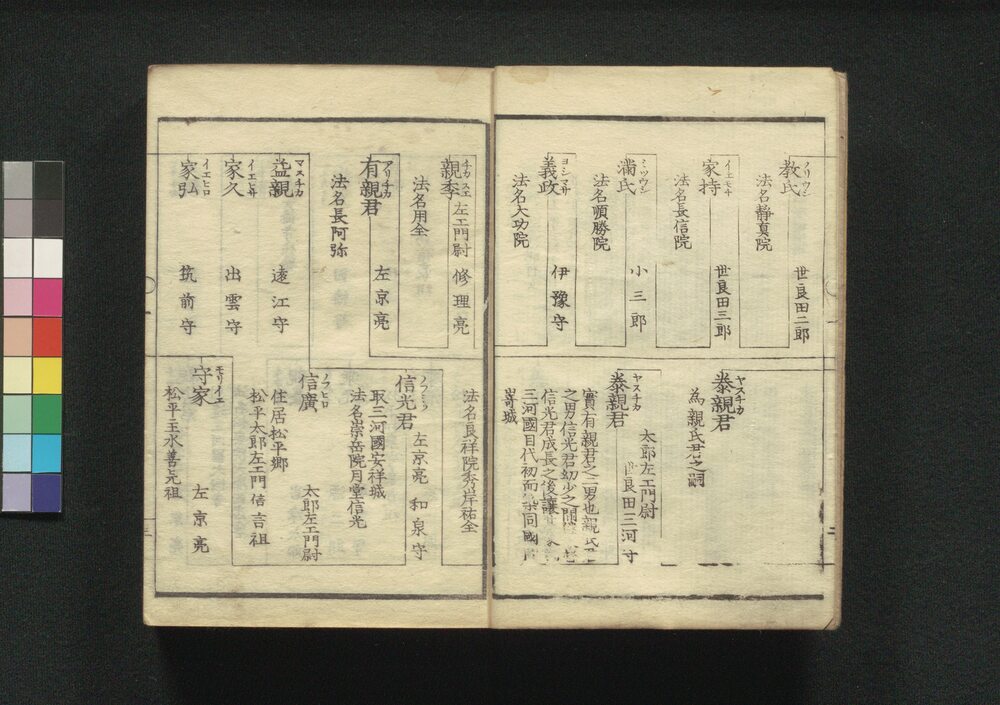 ノリウジ
教氏 世良田二郎
法名靜真院
イエモチ
家持 世良田三郎
法名長信院
ミツウジ
滿氏 小三郎
法名順勝院
ヨシマサ
義政 伊豫守
法名大功院
ヤスチカ
泰親君
為親氏君之嗣
ヤスチカ
泰親君 太郎左エ門尉
世良田三河守
實有親君之二男也親氏君
之男信光君幼少之間
信光君成長之後讓
三河國目代初而築同國
嵜城
チカスエ
親季 左エ門尉 修理亮
法名用全
アリチカ
有親君 左京亮
法名長阿弥
マスチカ
益親 遠江守
イエヒサ
家久 出雲守
イエヒロ
家弘 筑前守
法名良祥院秀岸祐全
ノブミツ
信光君 左京亮 和泉守
取三河國安祥城
法名崇岳院月堂信光
ノブヒロ
信廣 太郎左エ門尉
住居松平郷
松平太郎左エ門信言祖
モリイエ
守家 左京亮
松平玉水善元祖